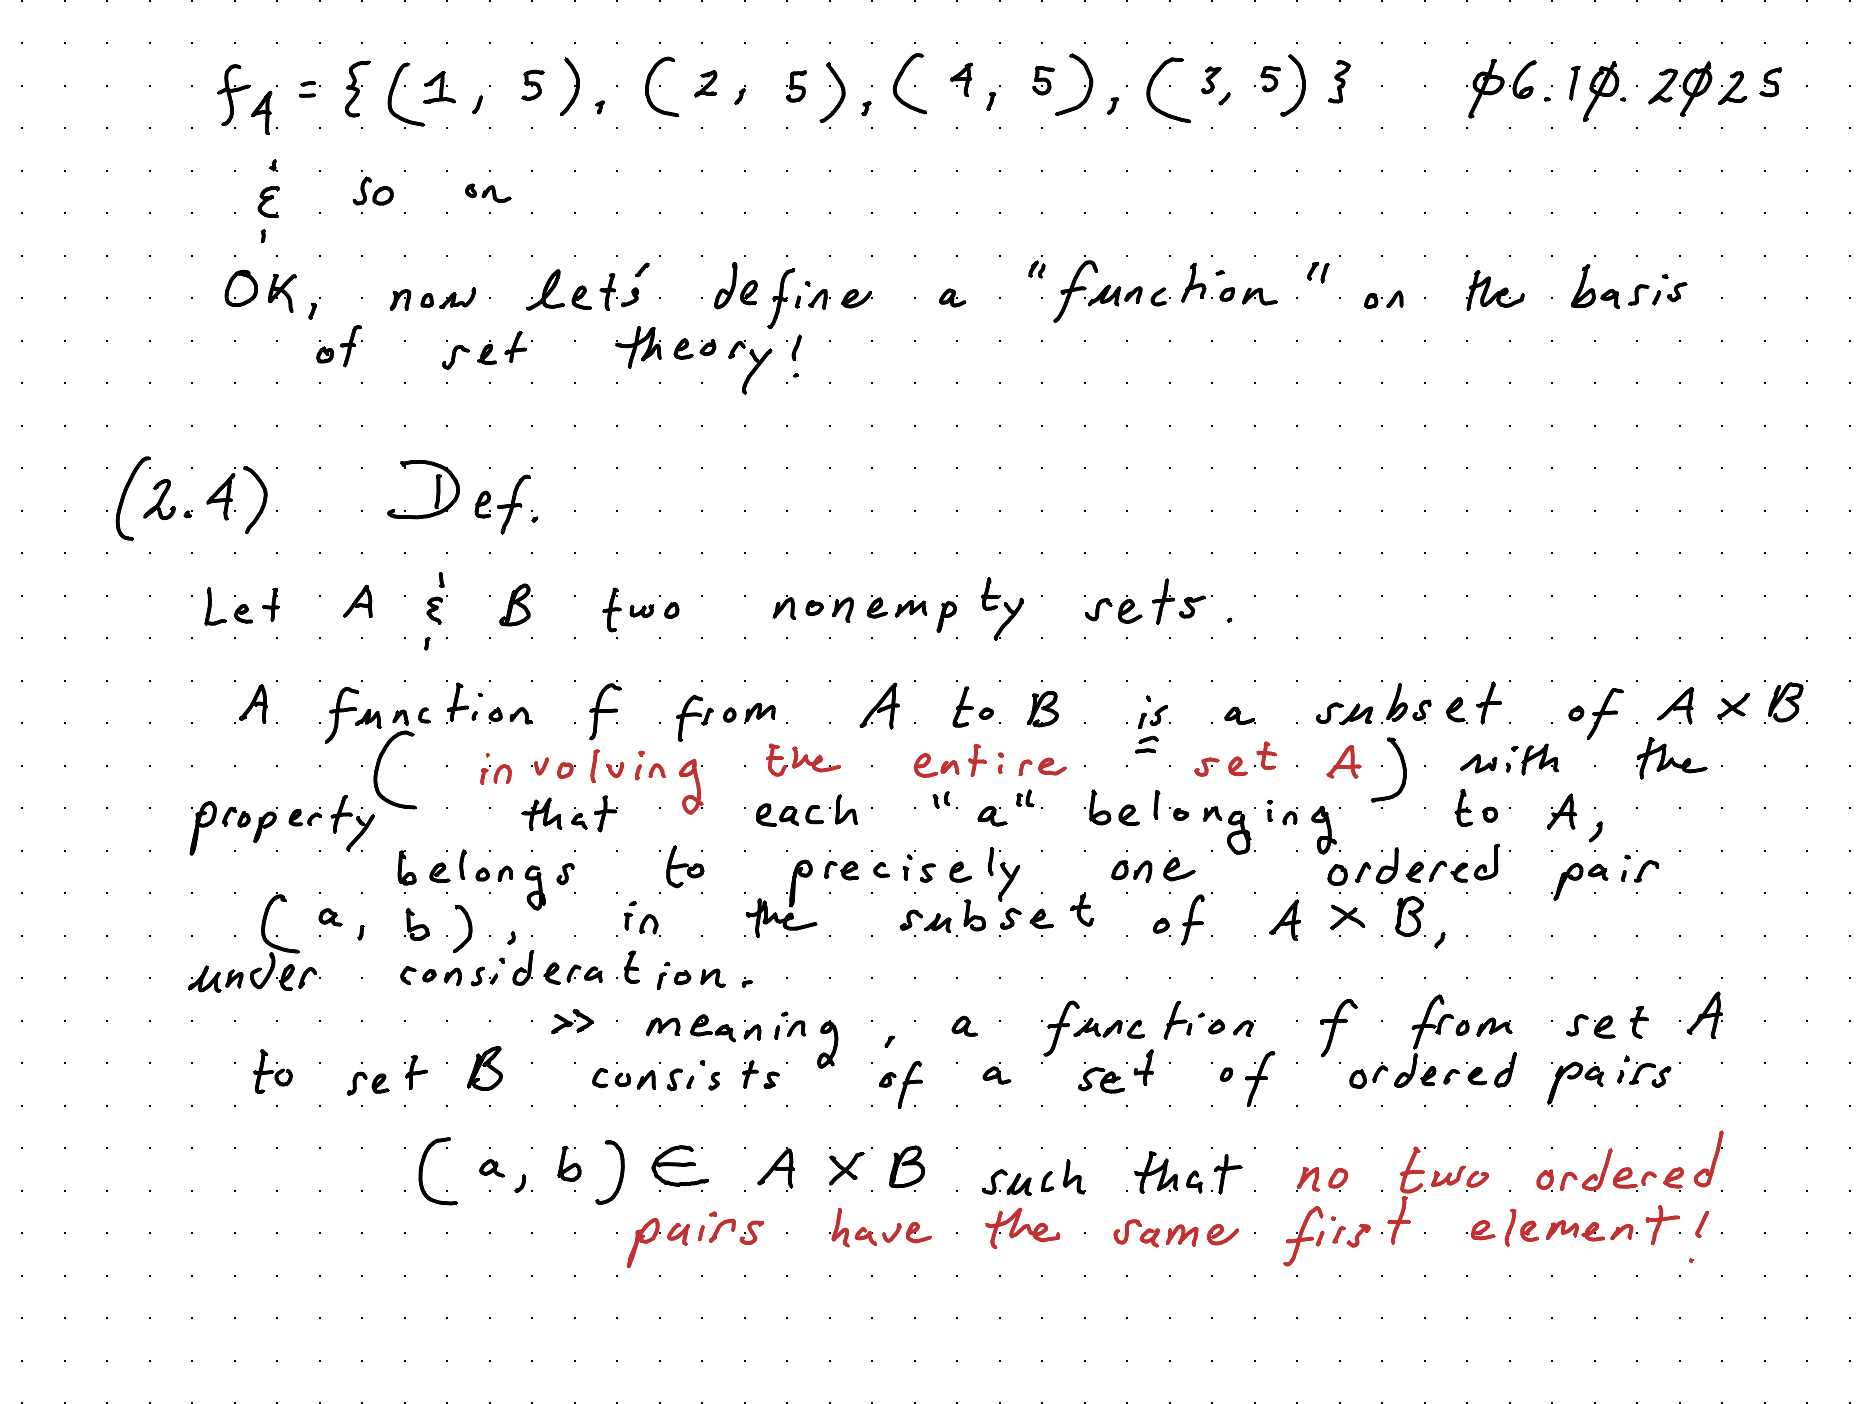 f4 = {(1, 5), (2, 5), (4, 5), (3, 5)} 06.10.2025
& so on
OK, now let's define a "function" on the basis
of set theory!
(2.4) Def.
Let A & B two nonempty sets.
A function f from A to B is a subset of A × B
(involving the entire set A) with the
property that each "a" belonging to A,
belongs to precisely one ordered pair
(a, b), in the subset of A × B,
under consideration.
>> meaning, a function f from set A
to set B consists of a set of ordered pairs
(a, b) ∈ A × B such that no two ordered
pairs have the same first element!